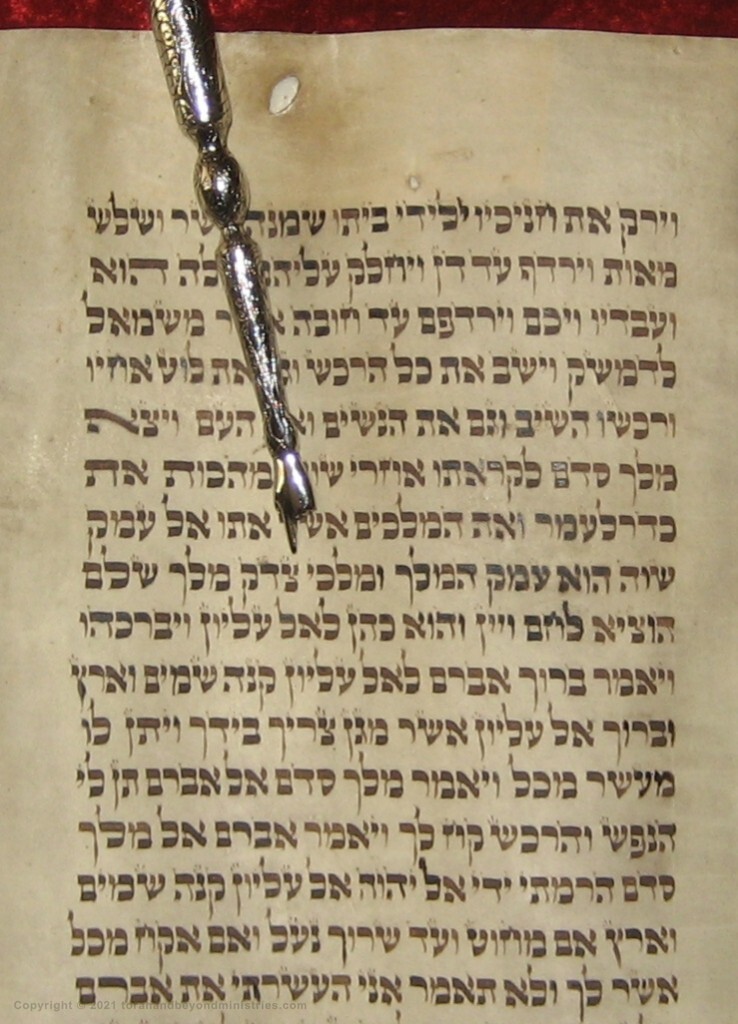 וירק את חניכיו ילידי ביתו שמנה עשר ושלש
מאות וירדף עד דן ויחלק עליהם לילה הוא
ועבדיו ויכם וירדפם עד חובה אשר משמאל
לדמשק וישב את כל הרכש וגם את לוט אחיו
ורכשו השיב וגם את הנשים ואת העם ויצא
מלך סדם לקראתו אחרי שובו מהכות את
כדרלעמר ואת המלכים אשר אתו אל עמק
שוה הוא עמק המלך ומלכי צדק מלך שלם
הוציא לחם ויין והוא כהן לאל עליון ויברכהו
ויאמר ברוך אברם לאל עליון קנה שמים וארץ
וברוך אל עליון אשר מגן צריך בידך ויתן לו
מעשר מכל ויאמר מלך סדם אל אברם תן לי
הנפש והרכש קח לך ויאמר אברם אל מלך
סדם הרמתי ידי אל יהוה אל עליון קנה שמים
וארץ אם מחוט ועד שרוך נעל ואם אקח מכל
אשר לך ולא תאמר אני העשרתי את אברם
Copyright © 2021 torahandbeyondministries.com